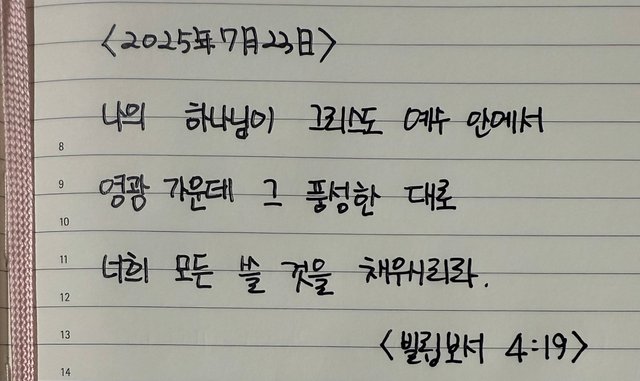 <2025年7月23日>
나의 하나님이 그리스도 예수 안에서
8
영광 가운데 그 풍성한 대로
9
10
너희 모든 쓸 것을 채우시리라.
11
12
<빌립보서 4:19>
13
14